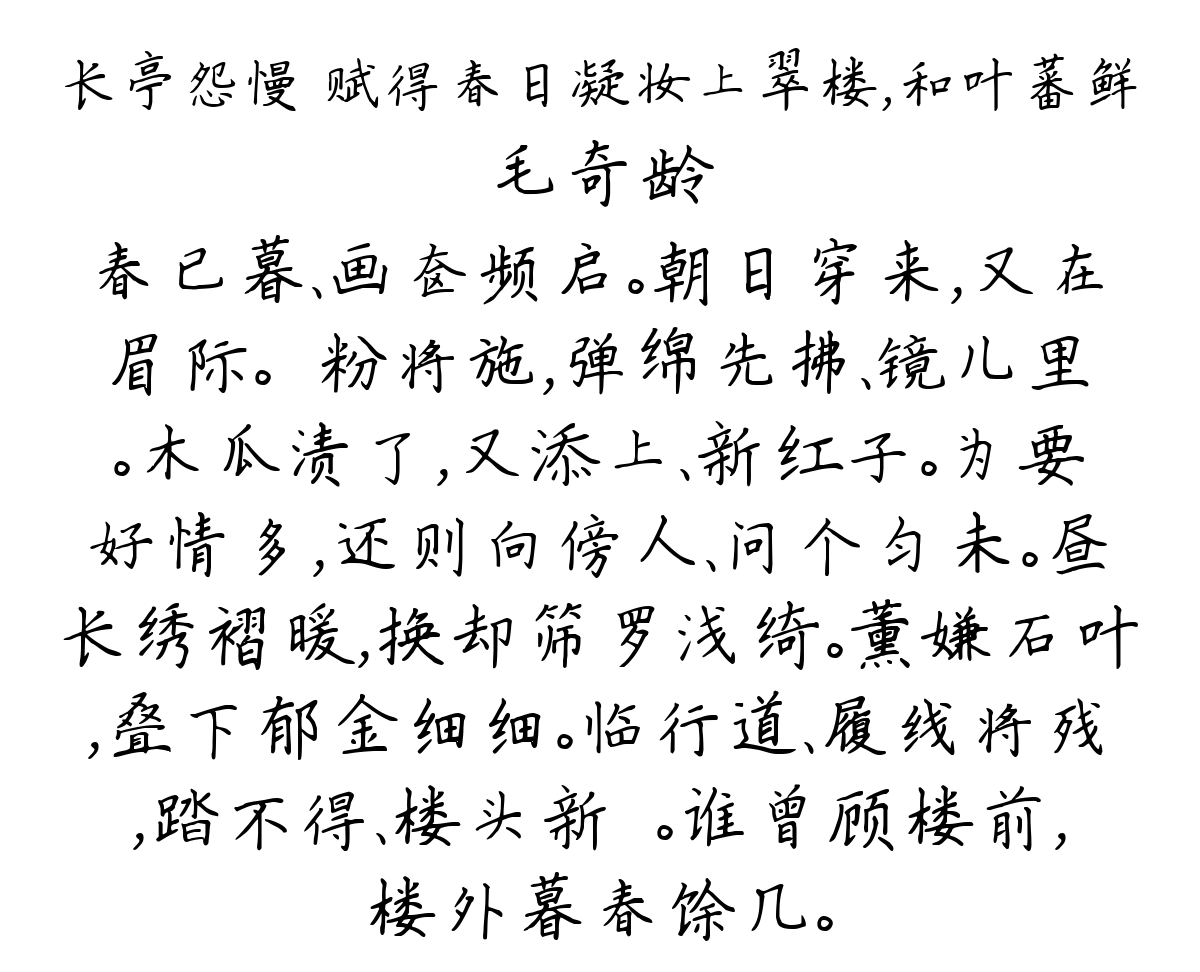 长亭怨慢 赋得春日凝妆上翠楼,和叶蕃鲜
毛奇龄
春已暮、画奁频启。朝日穿来,又在
眉际。 粉将施,弹绵先拂、镜儿里
。木瓜渍了,又添上、新红子。为要
好情多,还则向傍人、问个匀未。昼
长绣褶暖,换却筛罗浅绮。薰嫌石叶
,叠下郁金细细。临行道、履线将残
,踏不得、楼头新 。谁曾顾楼前,
楼外暮春馀几。